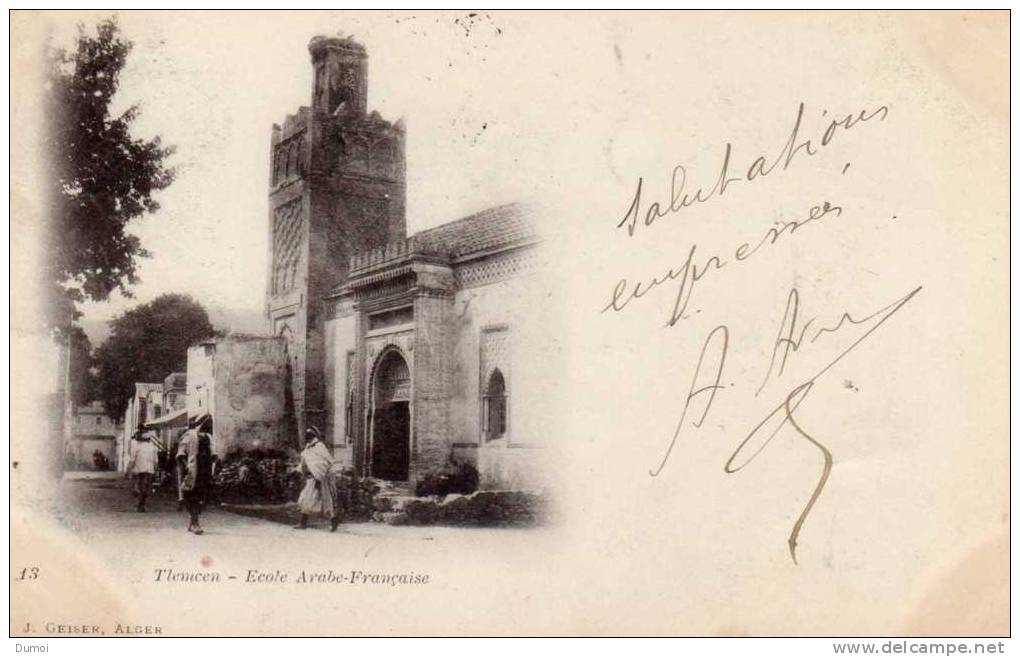 salutations
empressées
A.
13
Tlemcen - Ecole Arabe-Française
J. GEISER, ALGER
Dumoi
www.delcampe.net